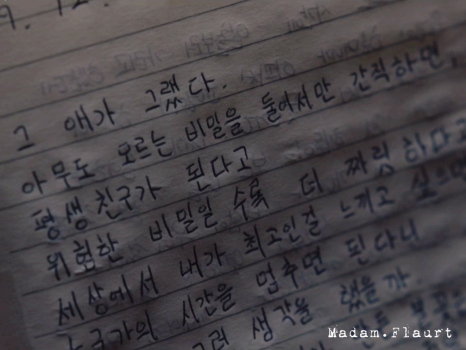 9. 12.
그 애가 그랬다.
아무도 모르는 비밀을 둘이서만 간직하면,
평생친구가 된다고
위험한 비밀일 수록 더 짜릿하다고
세상에서 내가 최고인걸 느끼고 싶으면
누군가의 시간을 멈추면 된다니
그런 생각을 했을까.
Madam.Flaurt